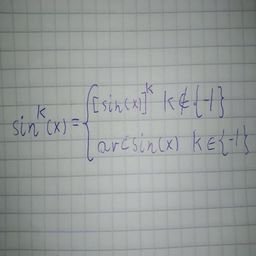 sin^k(x) = { [sin(x)]^k k ∉ {-1}
arcsin(x) k ∈ {-1}